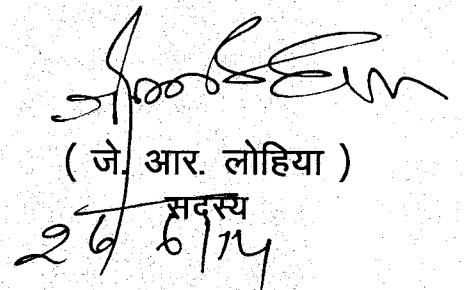 ( जे. आर. लोहिया )
सदस्य
26/6/14